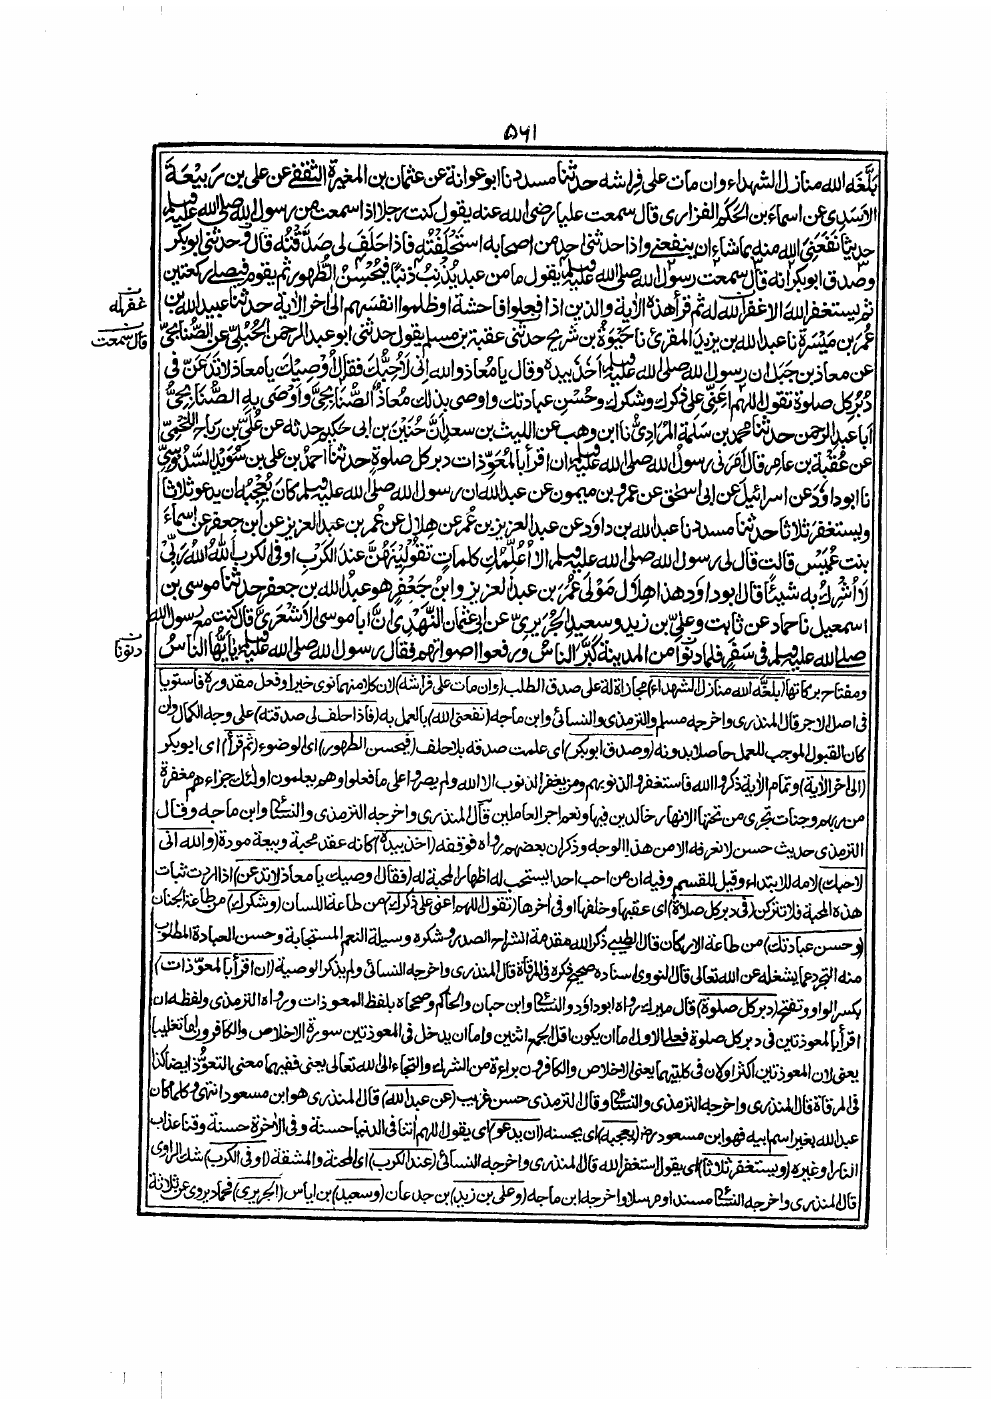 ٥٦١
بلَّغه الله منازل الشهداء وان مات على فراشه حدثنا مسدد نا ابو عوانة عن عثمان بن المغيرة الثقفي عن على بن ربيعة
الاسدى عن اسماء بن الحكم الفزارى قال سمعت عليا رضى الله عنه يقول كنت رجلا اذا سمعت من رسول الله صلى الله عليه وسلم
حديثا نفعنى الله منه بما شاء ان ينفعنى واذا حدثنى احد من اصحابه استحلفته فاذا حلف لى صدَّقتُه قال وحدثنى ابو بكر
وصدق ابو بكر انه قال سمعت رسول الله صلى الله عليه وسلم يقول ما من عبد يُذنب ذنبًا فيُحسن الطُّهور ثم يقوم فيصلى ركعتين
ثم يستغفر الله الا غفر الله له ثم قرأ هذه الآية والذين اذا فعلوا فاحشة او ظلموا انفسهم الى اخر الآية حدثنا عبيد الله بن
غفر له
عمر بن مَيْسَرة نا عبد الله بن يزيد المقرئ نا حَيْوَة بن شريح حدثنى عقبة بن مسلم يقول حدثنى ابو عبد الرحمن الحُبُلىّ عن الصُّنابحىّ
قال سمعت
عن معاذ بن جبل ان رسول الله صلى الله عليه وسلم اخذ بيده وقال يا معاذ والله انى لَاُحِبُّك فقال اُوصيك يا معاذ لا تدعنّ فى
دُبُر كل صلوة تقول اللهم اعنّى على ذكرك وشكرك وحُسْن عبادتك واوصى بذلك معاذٌ الصُّنابحىَّ واَوْصى به الصُّنابحىُّ
ابا عبد الرحمن حدثنا محمد بن سلمة المُرادىّ نا ابن وهب عن الليث بن سعد ان حُنَين بن ابى حكيم حدثه عن عُلَىّ بن رباح اللخمىّ
عن عُقْبة بن عامر قال امرنى رسول الله صلى الله عليه وسلم ان اقرأ بالمعوّذات دبر كل صلوةٍ حدثنا احمد بن على بن سُوَيد السَّدُوسىّ
نا ابو داوٗد عن اسرائيل عن ابى اسحٰق عن عمرو بن ميمون عن عبد الله ان رسول الله صلى الله عليه وسلم كان يُعْجبه ان يدعو ثلاثا
ويستغفر ثلاثا حدثنا مسدد نا عبد الله بن داود عن عبد العزيز بن عُمر عن هِلال عن عُمر بن عبد العزيز عن ابن جعفر عن اسماء
بنت عُمَيْس قالت قال لى رسول الله صلى الله عليه وسلم اَلا اُعلِّمُكِ كلماتٍ تقُولينَهُنَّ عند الكَرْب او فى الكرب اَللهُ اللهُ ربِّى
لا اُشركُ به شيئًا قال ابو داوٗد هذا هِلال مَوْلى عُمَر بن عبد العزيز وابن جَعْفر هو عبد الله بن جعفر حدثنا موسى بن
اسمعيل نا حماد عن ثابت وعلىِّ بن زيد وسعيدٍ الجُريرىّ عن ابى عثمان النَّهْدِىّ انّ ابا موسى الاشعرىّ قال كنت مع رسول الله
صلى الله عليه وسلم فى سَفَر فلما دنوْا من المدينة كَبَّر الناسُ ورفعوا اصواتهم فقال رسول الله صلى الله عليه وسلم يا أيُّها الناسُ
دنونا
ومفتاح بركاتها (بلغه الله منازل الشهداء) مجازاة له على صدق الطلب (وان مات على فراشه) لان كلا منهما نوى خيرا وفعل مقدوره فاستويا
فى اصل الاجر قال المنذرى واخرجه مسلم والترمذى والنسائى وابن ماجه (نفعنى الله) بالعمل به (فاذا حلف لى صدقته) على وجه الكمال وان
كان القبول الموجب للعمل حاصلا بدونه (وصدق ابو بكر) اى علمت صدقه بلا حلف (فيحسن الطهور) اى الوضوء (ثم قرأ) اى ابو بكر
(الى اخر الآية) وتمام الآية ذكروا الله فاستغفروا لذنوبهم ومن يغفر الذنوب الا الله ولم يصروا على ما فعلوا وهم يعلمون اولئك جزاءهم مغفرة
من ربهم وجنات تجرى من تحتها الانهار خالدين فيها ونعم اجر العاملين قال المنذرى واخرجه الترمذى والنسائى وابن ماجه وقال
الترمذى حديث حسن لا نعرفه الا من هذا الوجه وذكر ان بعضهم رواه فوقفه (اخذ بيده) كانه عقد محبة وبيعة مودة (والله انى
لاحبك) لامه للابتداء وقيل للقسم وفيه ان من احب احدا يستحب له اظهار المحبة له (فقال اوصيك يا معاذ لا تدعن) اذا اردت ثبات
هذه المحبة فلا تتركن (فى دبر كل صلاة) اى عقبها وخلفها او فى اخرها (تقول اللهم اعنى على ذكرك) من طاعة اللسان (وشكرك) من طاعة الجنان
(وحسن عبادتك) من طاعة الاركان قال الطيبى ذكر الله مقدمة انشراح الصدر وشكره وسيلة النعم المستجابة وحسن العبادة المطلوب
منه التجرد عما يشغله عن الله تعالى قال النووى اسناده صحيح ذكره فى المرقاة قال المنذرى واخرجه النسائى ولم يذكر الوصية (ان اقرأ بالمعوذات)
بكسر الواو وتفتح (دبر كل صلوة) قال ميرك رواه ابو داؤد والنسائى وابن حبان والحاكم وصححاه بلفظ المعوذات ورواه الترمذى ولفظه ان
اقرأ بالمعوذتين فى دبر كل صلوة فعلى الاولى ما ان يكون اقل الجمع اثنين واما ان يدخل فى المعوذتين سورة الاخلاص والكافرون اما تغليبا
يعنى لان المعوذتين اكثر او لان فى كلتيهما يعنى الاخلاص والكافرون براءة من الشرك والتجاء الى الله تعالى يعنى ففيهما معنى التعوُّذ ايضا كذا
فى المرقاة قال المنذرى واخرجه الترمذى والنسائى وقال الترمذى حسن غريب (عن عبد الله) قال المنذرى هو ابن مسعود انتهى وكلما كان
عبد الله بغير اسم ابيه فهو ابن مسعود رض (يعجبه) اى يحسنه (ان يدعو) اى يقول اللهم اٰتنا فى الدنيا حسنة وفى الآخرة حسنة وقنا عذاب
النار او غيره (ويستغفر ثلاثا) اى يقول استغفر الله قال المنذرى واخرجه النسائى (عند الكرب) اى المحنة والمشقة (او فى الكرب) شك الراوى
قال المنذرى واخرجه النسائى مسندا ومرسلا واخرجه ابن ماجه (وعلى بن زيد) بن جدعان (وسعيد) بن اياس (الجريرى) فحماد يروى عن ثلاثة